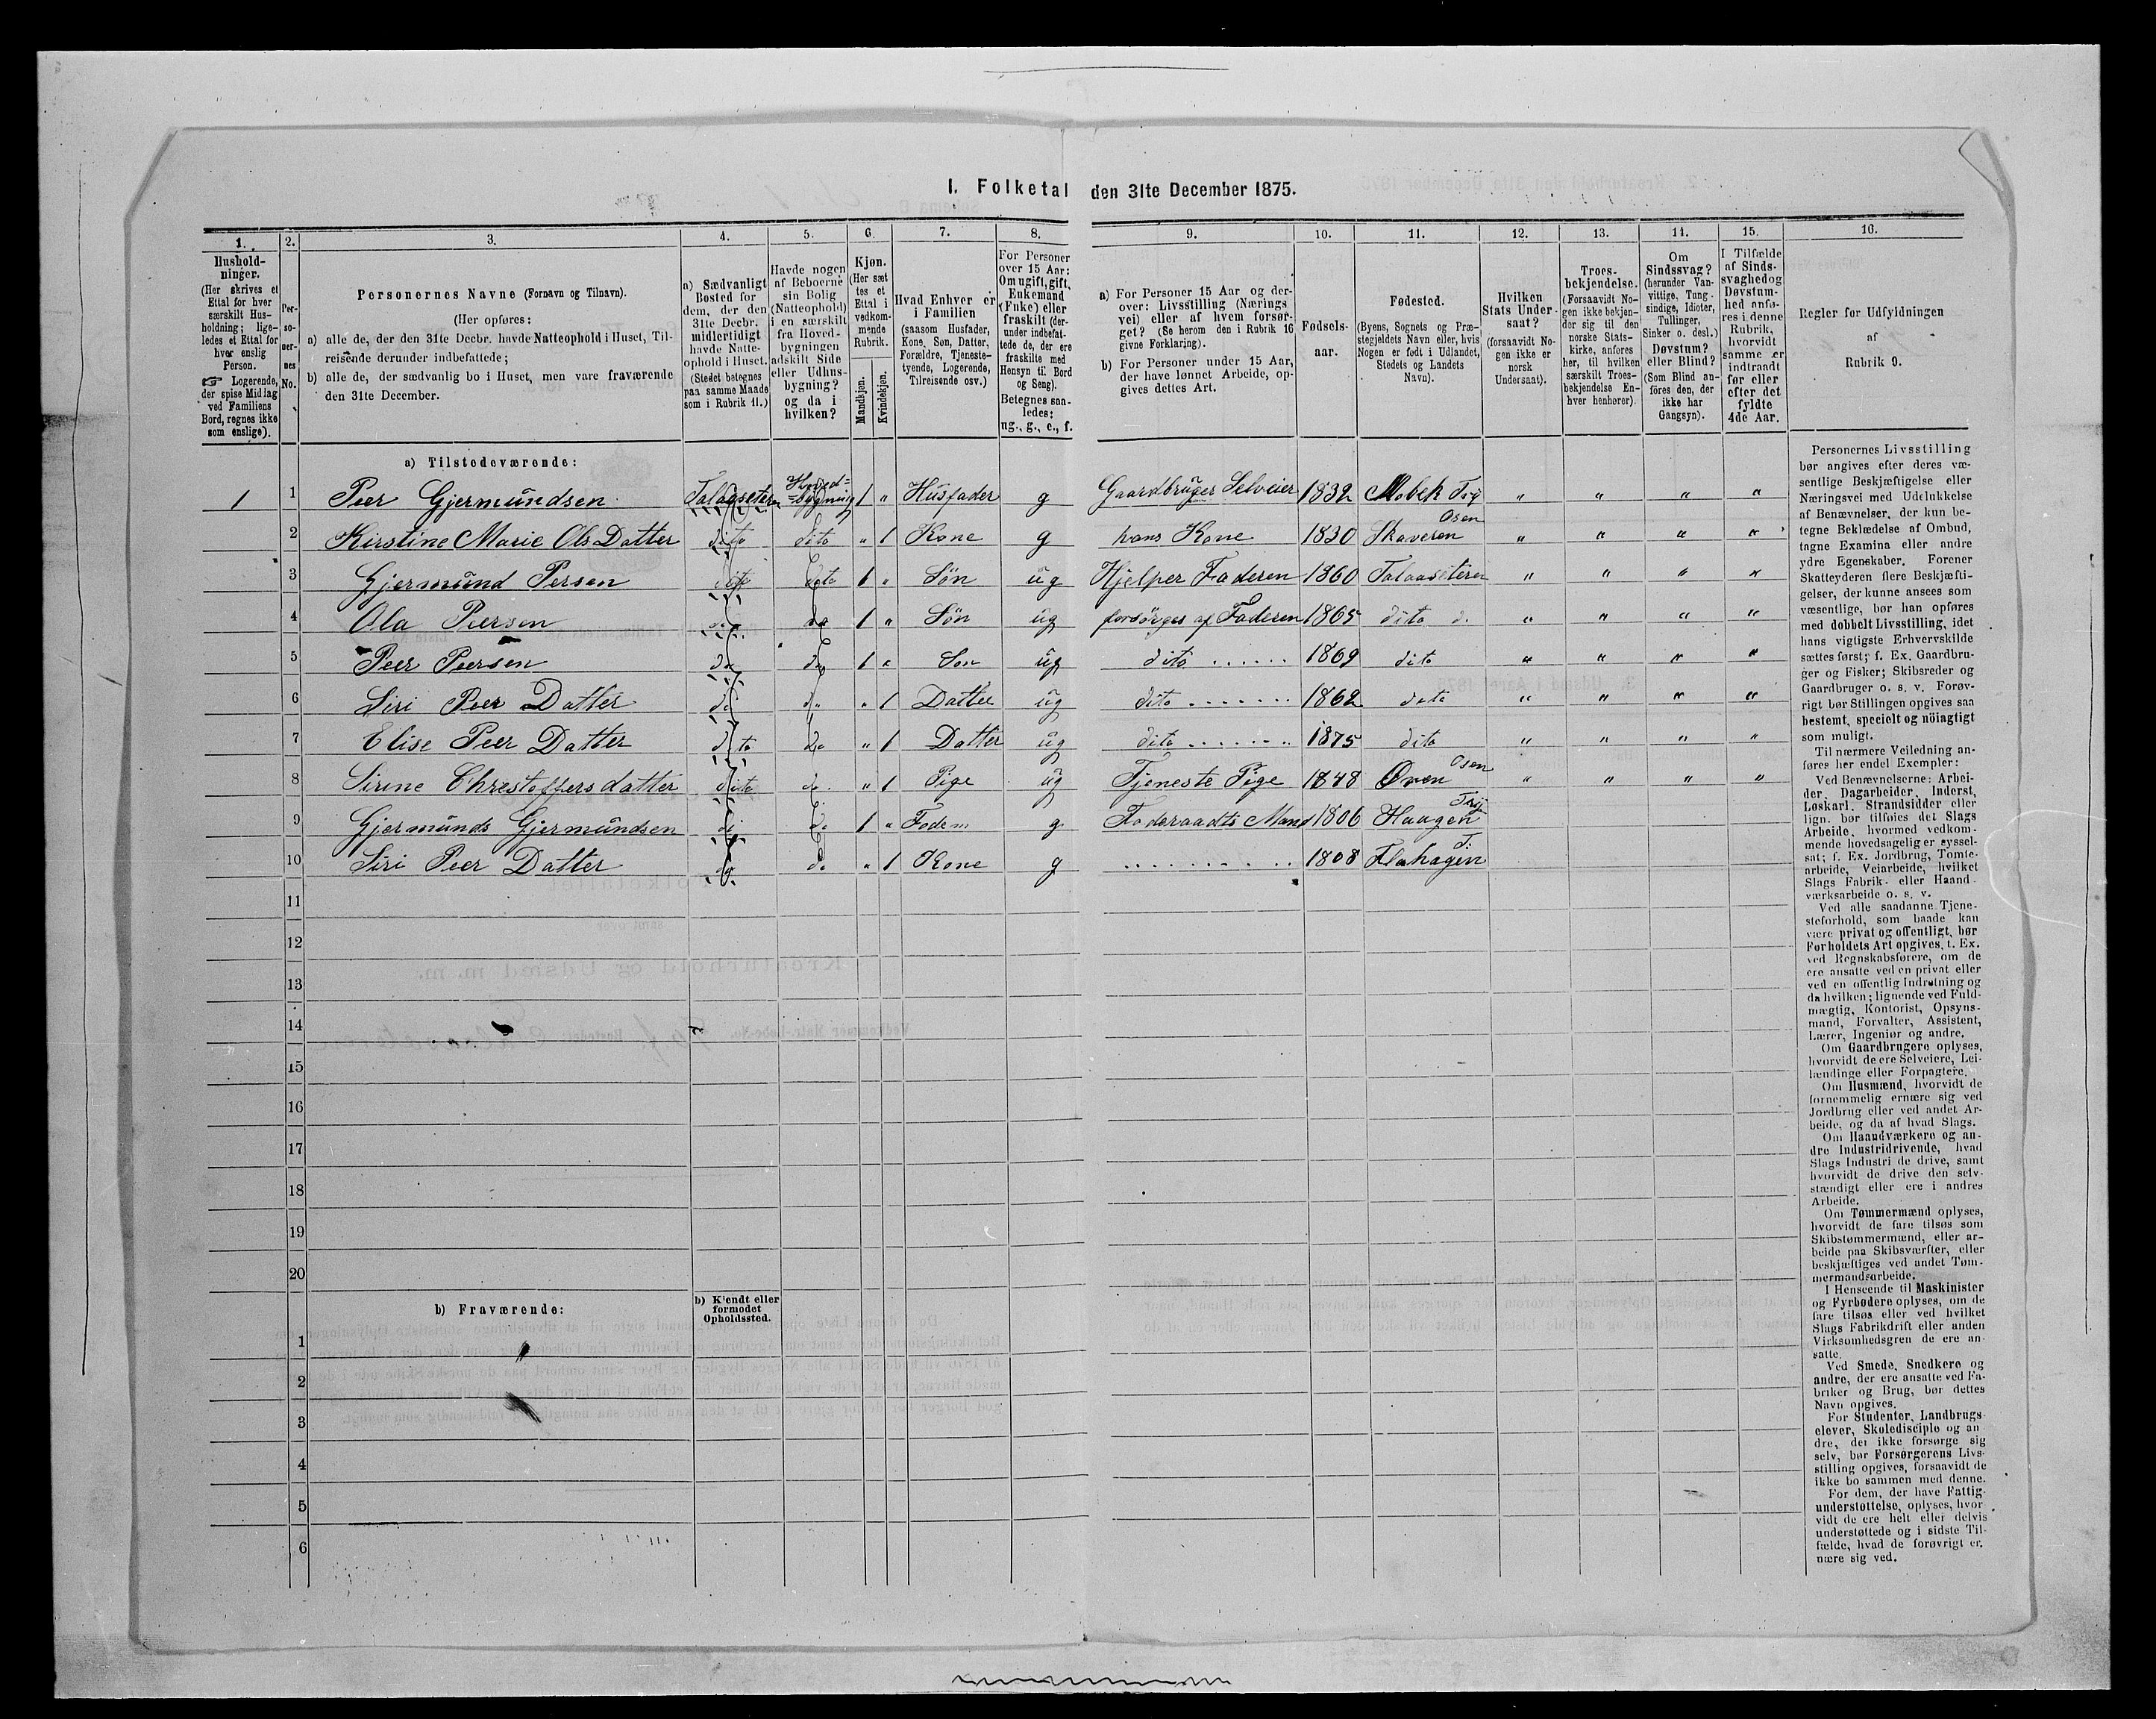 I. Folketal den 31te December 1875.
1. 2. 3. 4. 5. 6. 7. 8. 9. 10. 11. 12. 13. 14. 15. 16.
Hushold-
ninger.
(Her skrives et
Ettal for hver
særskilt Hus-
holdning; lige-
ledes et Ettal for
hver enslig
Person.
☞ Logerende,
der spise Middag
ved Familiens
Bord, regnes ikke
som enslige).
Per-
so-
ner-
nes
No.
Personernes Navne (Fornavn og Tilnavn).
(Her opføres:
a) alle de, der den 31te Decbr. havde Natteophold i Huset, Til-
reisende derunder indbefattede;
b) alle de, der sædvanlig bo i Huset, men vare fraværende
den 31te December.
a) Sædvanligt
Bosted for
dem, der den
31te Decbr.
midlertidigt
havde Natte-
ophold i Huset.
(Stedet betegnes
paa samme Maade
som i Rubrik 11.)
Havde nogen
af Beboerne
sin Bolig
(Natteophold)
i en særskilt
fra Hoved-
bygningen
adskilt Side
eller Udhus-
bygning?
og da i
hvilken?
Kjøn.
(Her sæt
tes et
Ettal i
vedkom-
mende
Rubrik.
Mandkjøn.
Kvindekjøn.
Hvad Enhver er
i Familien
(saasom Husfader,
Kone, Søn, Datter,
Forældre, Tjeneste-
tyende, Logerende,
Tilreisende osv.)
For Personer
over 15 Aar:
Om ugift, gift,
Enkemand
(Enke) eller
fraskilt (der-
under indbefat-
tede de, der ere
fraskilte med
Hensyn til Bord
og Seng).
Betegnes saa-
ledes:
ug., g., e., f.
a) For Personer 15 Aar og der-
over: Livsstilling (Nærings
vei) eller af hvem forsør-
get? (Se herom den i Rubrik 16
givne Forklaring).
b) For Personer under 15 Aar,
der have lønnet Arbeide, op-
gives dettes Art.
Fødsels-
aar.
Fødested.
(Byens, Sognets og Præ-
stegjeldets Navn eller, hvis
Nogen er født i Udlandet,
Stedets og Landets
Navn).
Hvilken
Stats Under-
saat?
(forsaavidt No-
gen ikke er
norsk
Undersaat).
Troes-
bekjendelse.
(Forsaavidt No-
gen ikke bekjen-
der sig til den
norske Stats-
kirke, anføres
her, til hvilken
særskilt Troes-
bekjendelse En-
hver henhører).
Om
Sindssvag?
(herunder Van-
vittige, Tung-
sindige, Idioter,
Tullinger,
Sinker o. desl.)
Døvstum?
eller Blind?
(Som Blind an-
føres den, der
ikke har
Gangsyn).
I Tilfælde
af Sinds-
svaghed og
Døvstum-
hed anfø-
res i denne
Rubrik,
hvorvidt
samme er
indtraadt
før eller
efter det
fyldte
4de Aar.
Regler for Udfyldningen
af
Rubrik 9.
a) Tilstedeværende:
1 1 Peer Gjermundsen Talaaseteren Hoved=
=bygning 1 " Husfader g Gaardbruger Selveier 1832 Mobek Trij " " " "
2 Kirstine Marie Ols Datter dito dito " 1 Kone g hans Kone 1830 Skaveren Osen " " " "
3 Gjermund Persen dito dito 1 " Søn ug Hjelper Faderen 1860 Talaaseteren " " " "
4 Ola Peersen do do 1 " Søn ug forsörges af Faderen 1865 dito d. " " " "
5 Peer Peersen do do 1 " Søn ug dito ...... 1869 dito " " " "
6 Siri Peer Datter do do " 1 Datter ug dito ....... 1862 dito " " " "
7 Elise Peer Datter dito do " 1 Datter ug dito ....... 1875 dito " " " "
8 Sirine Chrestoffersdatter dito do. " 1 Pige ug Tjeneste Pige 1848 Øren Osen " " " "
9 Gjermunds Gjermundsen do do 1 " g. Foderaadts Mand 1806 Haagen Trij
10 Siri Peer Datter do do " 1 Kone g .......... 1808 Flahagen T.
11
12
13
14
15
16
17
18
19
20
b) Fraværende:
b) Kjendt eller
formodet
Opholdssted.
1 "
2
3
4
5
6
Personernes Livsstilling
bør angives efter deres væ-
sentlige Beskjæftigelse eller
Næringsvei med Udelukkelse
af Benævnelser, der kun be-
tegne Beklædelse af Ombud,
tagne Examina eller andre
ydre Egenskaber. Forener
Skatteyderen flere Beskjæfti-
gelser, der kunne ansees som
væsentlige, bør han opføres
med dobbelt Livsstilling, idet
hans vigtigste Erhvervskilde
sættes først; f. Ex. Gaardbru-
ger og Fisker; Skibsreder og
Gaardbruger o. s. v. Forøv-
rigt bør Stillingen opgives saa
bestemt, specielt og nöiagtigt
som muligt.
Til nærmere Veiledning an-
føres her endel Exempler:
Ved Benævnelserne: Arbei-
der, Dagarbeider, Inderst,
Løskarl, Strandsidder eller
lign. bør tilføies det Slags
Arbeide, hvormed vedkom-
mende hovedsagelig er syssel-
sat; f. Ex. Jordbrug, Tomte-
arbeide, Veiarbeide, hvilket
Slags Fabrik- eller Haand-
værksarbeide o. s. v.
Ved alle saadanne Tjene-
steforhold, som baade kan
være privat og offentligt, bør
Forholdets Art opgives, t. Ex.
ved Regnskabsførere, om de
ere ansatte ved en privat eller
ved en offentlig Indretning og
da hvilken; lignende ved Fuld-
mægtig, Kontorist, Opsyns-
mand, Forvalter, Assistent,
Lærer, Ingeniør og andre.
Om Gaardbrugere oplyses,
hvorvidt de ere Selveiere, Lei-
lændinge eller Forpagtere.
Om Husmænd, hvorvidt de
fornemmelig ernære sig ved
Jordbrug eller ved andet Ar-
beide, og da af hvad Slags.
Om Haandværkere og an-
dre Industridrivende, hvad
Slags Industri de drive, samt
hvorvidt de drive den selv-
stændigt eller ere i andres
Arbeide.
Om Tømmermænd oplyses,
hvorvidt de fare tilsøs som
Skibstømmermænd, eller ar-
beide paa Skibsværfter, eller
beskjæftiges ved andet Tøm-
mermandsarbeide.
I Henseende til Maskinister
og Fyrbødere oplyses, om de
fare tilsøs eller ved hvilket
Slags Fabrikdrift eller anden
Virksomhedsgren de ere an-
satte.
Ved Smede, Snedkere og
andre, der ere ansatte ved Fa-
briker og Brug, bør dettes
Navn opgives.
For Studenter, Landbrugs-
elever, Skoledisciple og an-
dre, der ikke forsørge sig
selv, bør Forsørgerens Livs-
stilling opgives, forsaavidt de
ikke bo sammen med denne.
For dem, der have Fattig-
understøttelse, oplyses, hvor-
vidt de ere helt eller delvis
understøttede og i sidste Til-
fælde, hvad de forøvrigt er-
nære sig ved.